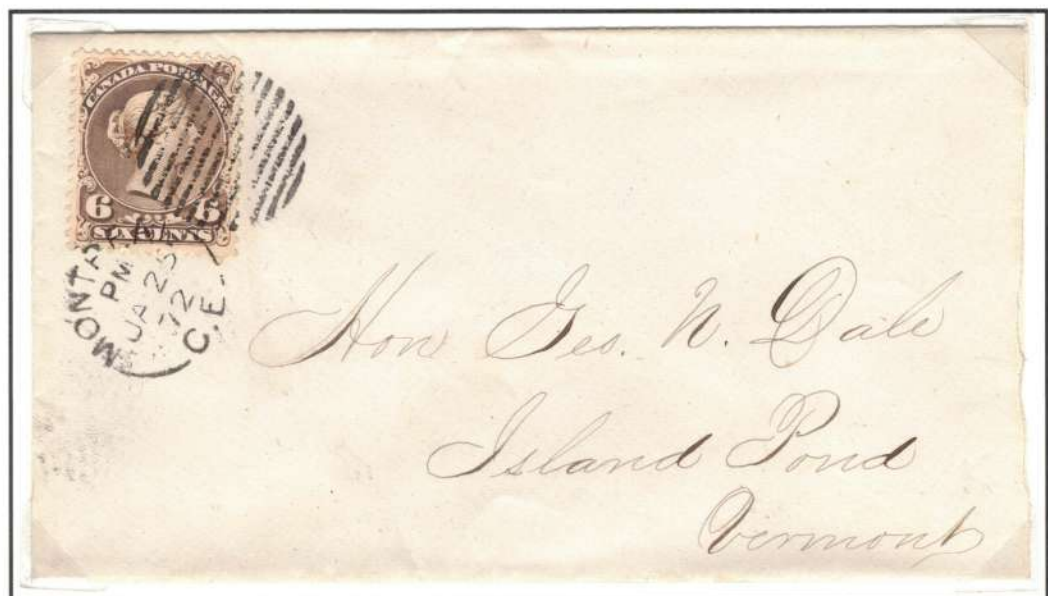 CANADA POSTAGE
6 6
SIX CENTS
PM
JA 25
72
C.E.
Hon Geo. N. Dale
Island Pond
Vermont